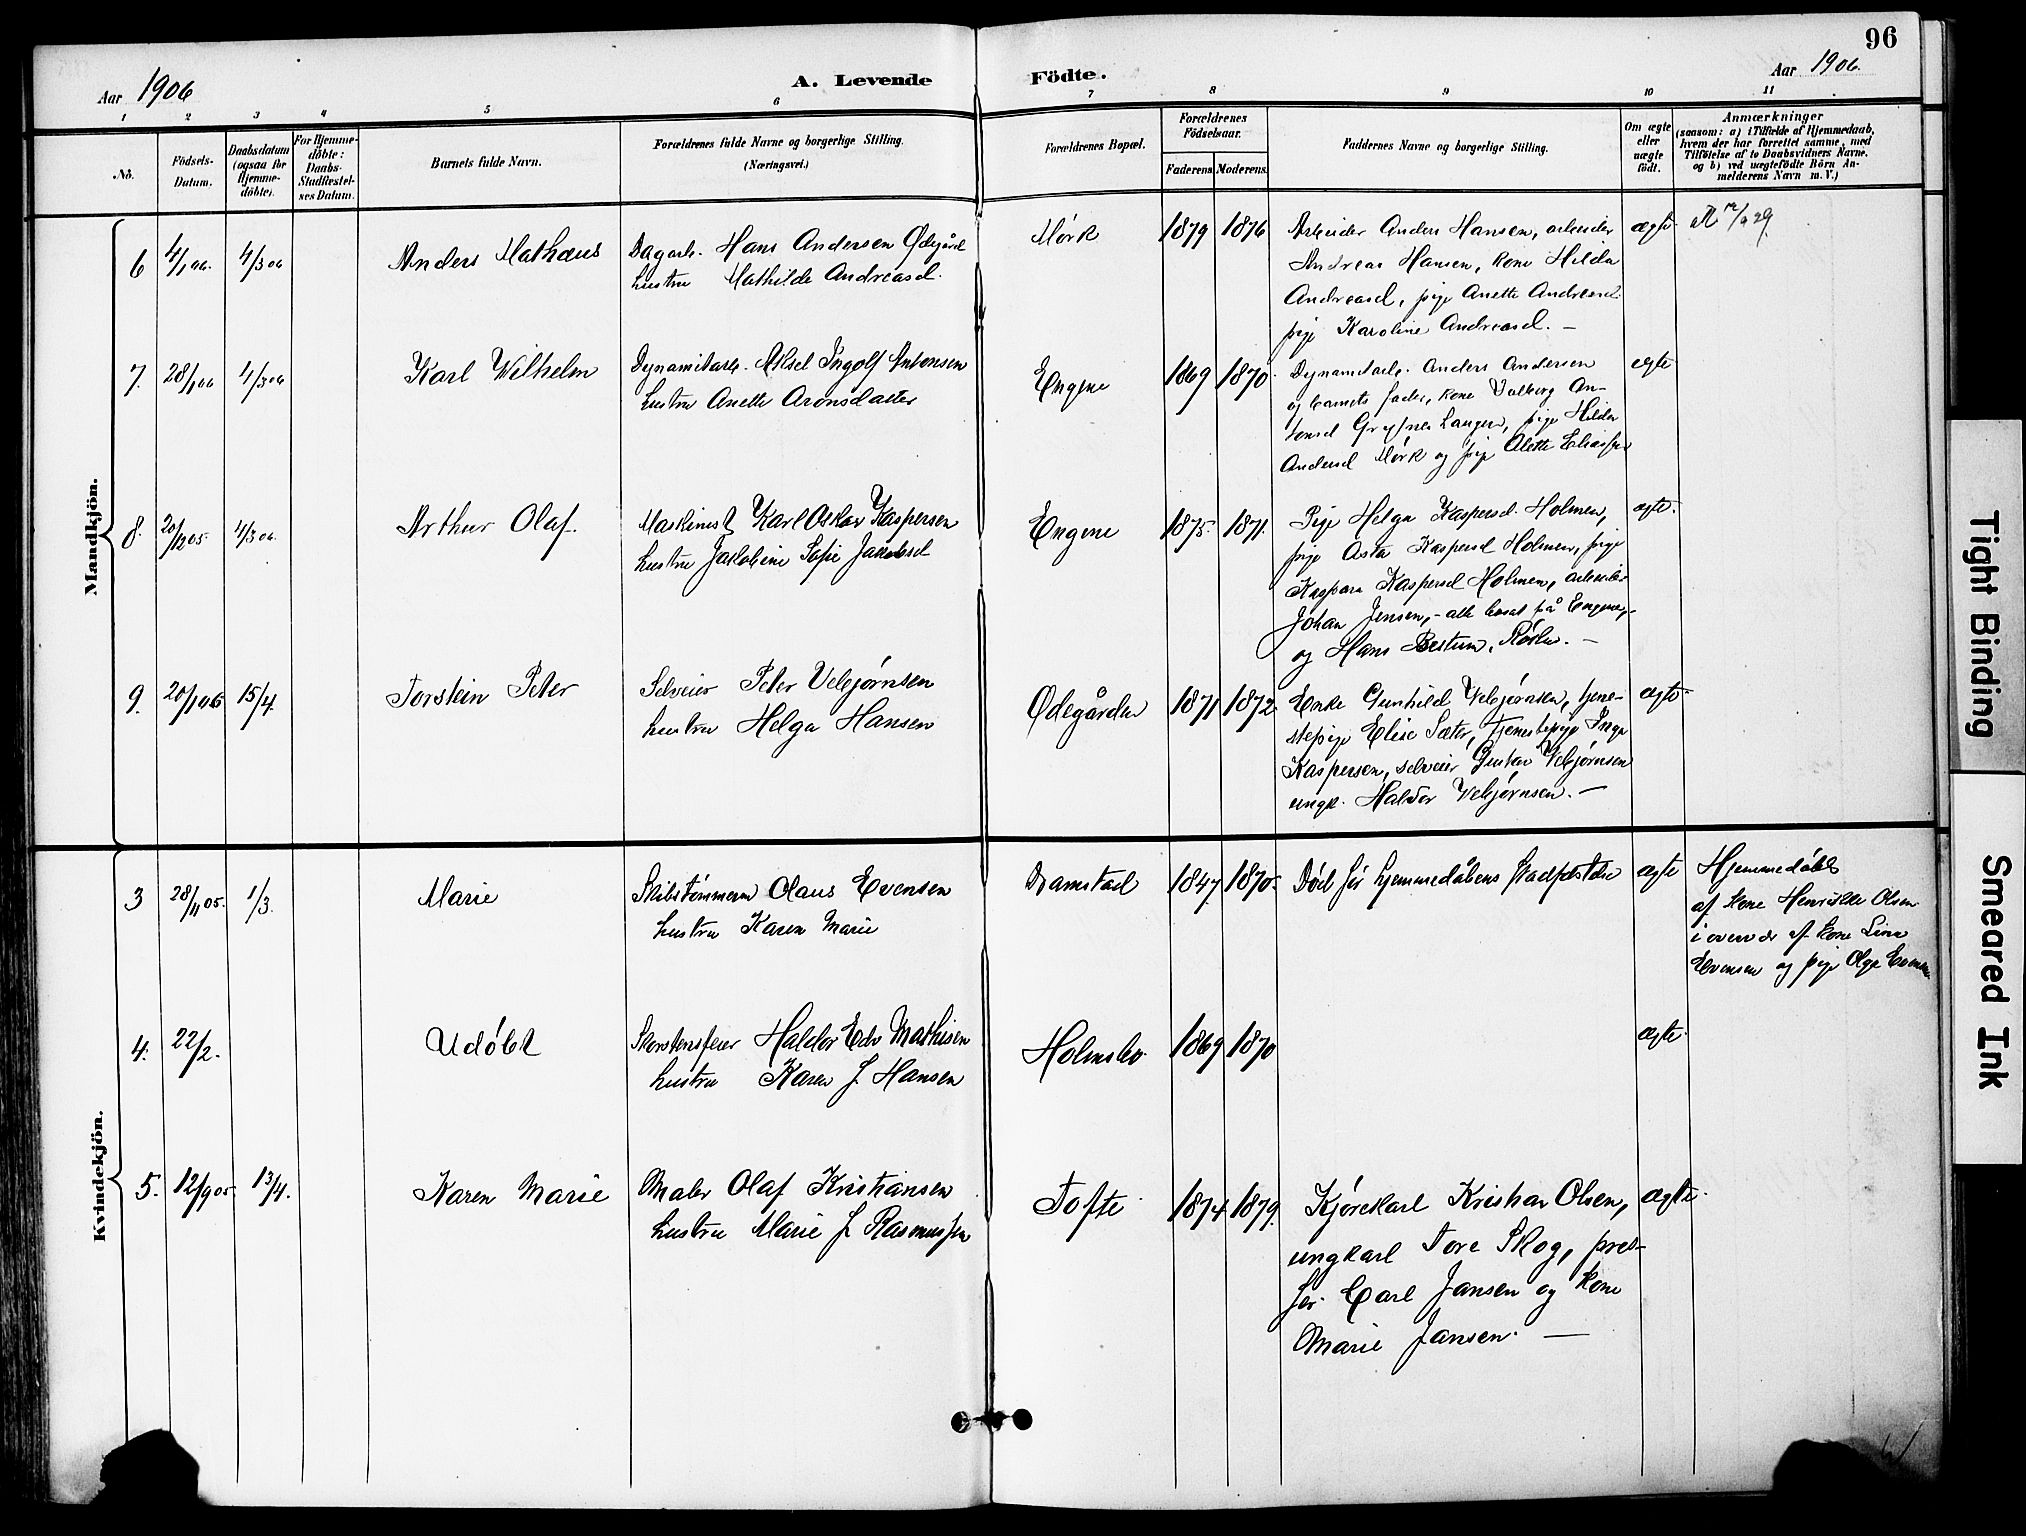 96
Aar 1906
A. Levende
Födte.
Aar 1906.
1 2 3 4 5 6 7 8 9 10 11
No.
Födsels-
Datum.
Daabsdatum
(ogsaa för
Hjemme-
döbte).
For Hjemme-
döbte:
Daabs-
Stadfæstel-
ses Datum.
Barnets fulde Navn.
Forældrenes fulde Navne og borgerlige Stilling.
(Næringsvei.)
Forældrenes Bopæl.
Forældrenes
Födselsaar.
Faderens.
Moderens.
Faddernes Navne og borgerlige Stilling.
Om ægte
eller
uægte
födt.
Anmærkninger
(saasom: a) i Tilfælde af Hjemmedaab,
hvem der har forrettet samme, med
Tilföielse af to Daabsvidners Navne,
og b) ved uægtefödte Börn An-
melderens Navn m. V.)
Mandkjön.
6 4/1 06. 4/3 06
Anders Mathæus
Dagarb. Hans Andersen Ødegård
hustru Mathilde Andreasd.
Mørk
1879 1876
Arbeider Anders Hansen, arbeider
Andreas Hansen, kone Hilda
Andreasd, pige Anette Andreasd.
pige Karoline Andreasd. —
ægte
7. 28/1 06 4/3 06
Karl Wilhelm
Dynamitarb. Aksel Ingolf Antonsen
hustru Anette Aronsdatter
Engene
1869 1870
Dynamitarb. Anders Andersen
og barnets fader, kone Valborg An-
tonsd Laugen, pige Hilda
Andersd Mørk og pige Alette Eliassen
ægte
8. 20/12 05 4/3 06.
Arthur Olaf.
Maskinist Karl Oskar Kaspersen
hustru Jakobine Sofie Jakobsd
Engene
1875. 1871.
Pige Helga Kaspersd. Holmen,
pige Asta Kaspersd Holmen, pige
Kaspara Kaspersd Holmen, arbeider
Johan Jensen, - alle bosat på Engene,-
og Hans Bestum, . —
ægte.
9. 20/1 06 15/4.
Torstein Peter
Selveier Peter Vebjørnsen
hustru Helga Hansen
Ødegården
1871 1872.
Enke Gunhild Vebjørnsen, tjene-
stepige Elise Sæter, tjenestepige Inga
Kaspersen, selveier Gustav Vebjørnsen
ungk. Haldor Vebjørnsen. —
ægte
Kvindekjön.
3 28/11 05. 1/3.
Marie
Skibstømmerm Olaus Evensen
hustru Karen Marie
Ramstad
1847. 1870.
Død før hjemmedåbens stadfæstelse
ægte
Hjemmedøbt
af kone Henriette Olsen
i overvær af kone Lina
Evensen og pige Olga Evensen
4. 22/2.
Udøbt
Skorstensfeier Haldor Edv Mathisen
hustru Karen J. Hansen
Holmsbo
1869 1870
ægte
5. 12/9 05 13/4.
Karen Marie
Maler Olaf Kristiansen
hustru Marie J. Rasmussen
Tofte
1874 1879.
Kjørekarl Kristian Olsen,
ungkarl Tore Skog, pres-
ser Carl Jansen og kone
Marie Jansen. —
ægte.
Tight Binding
Smeared Ink